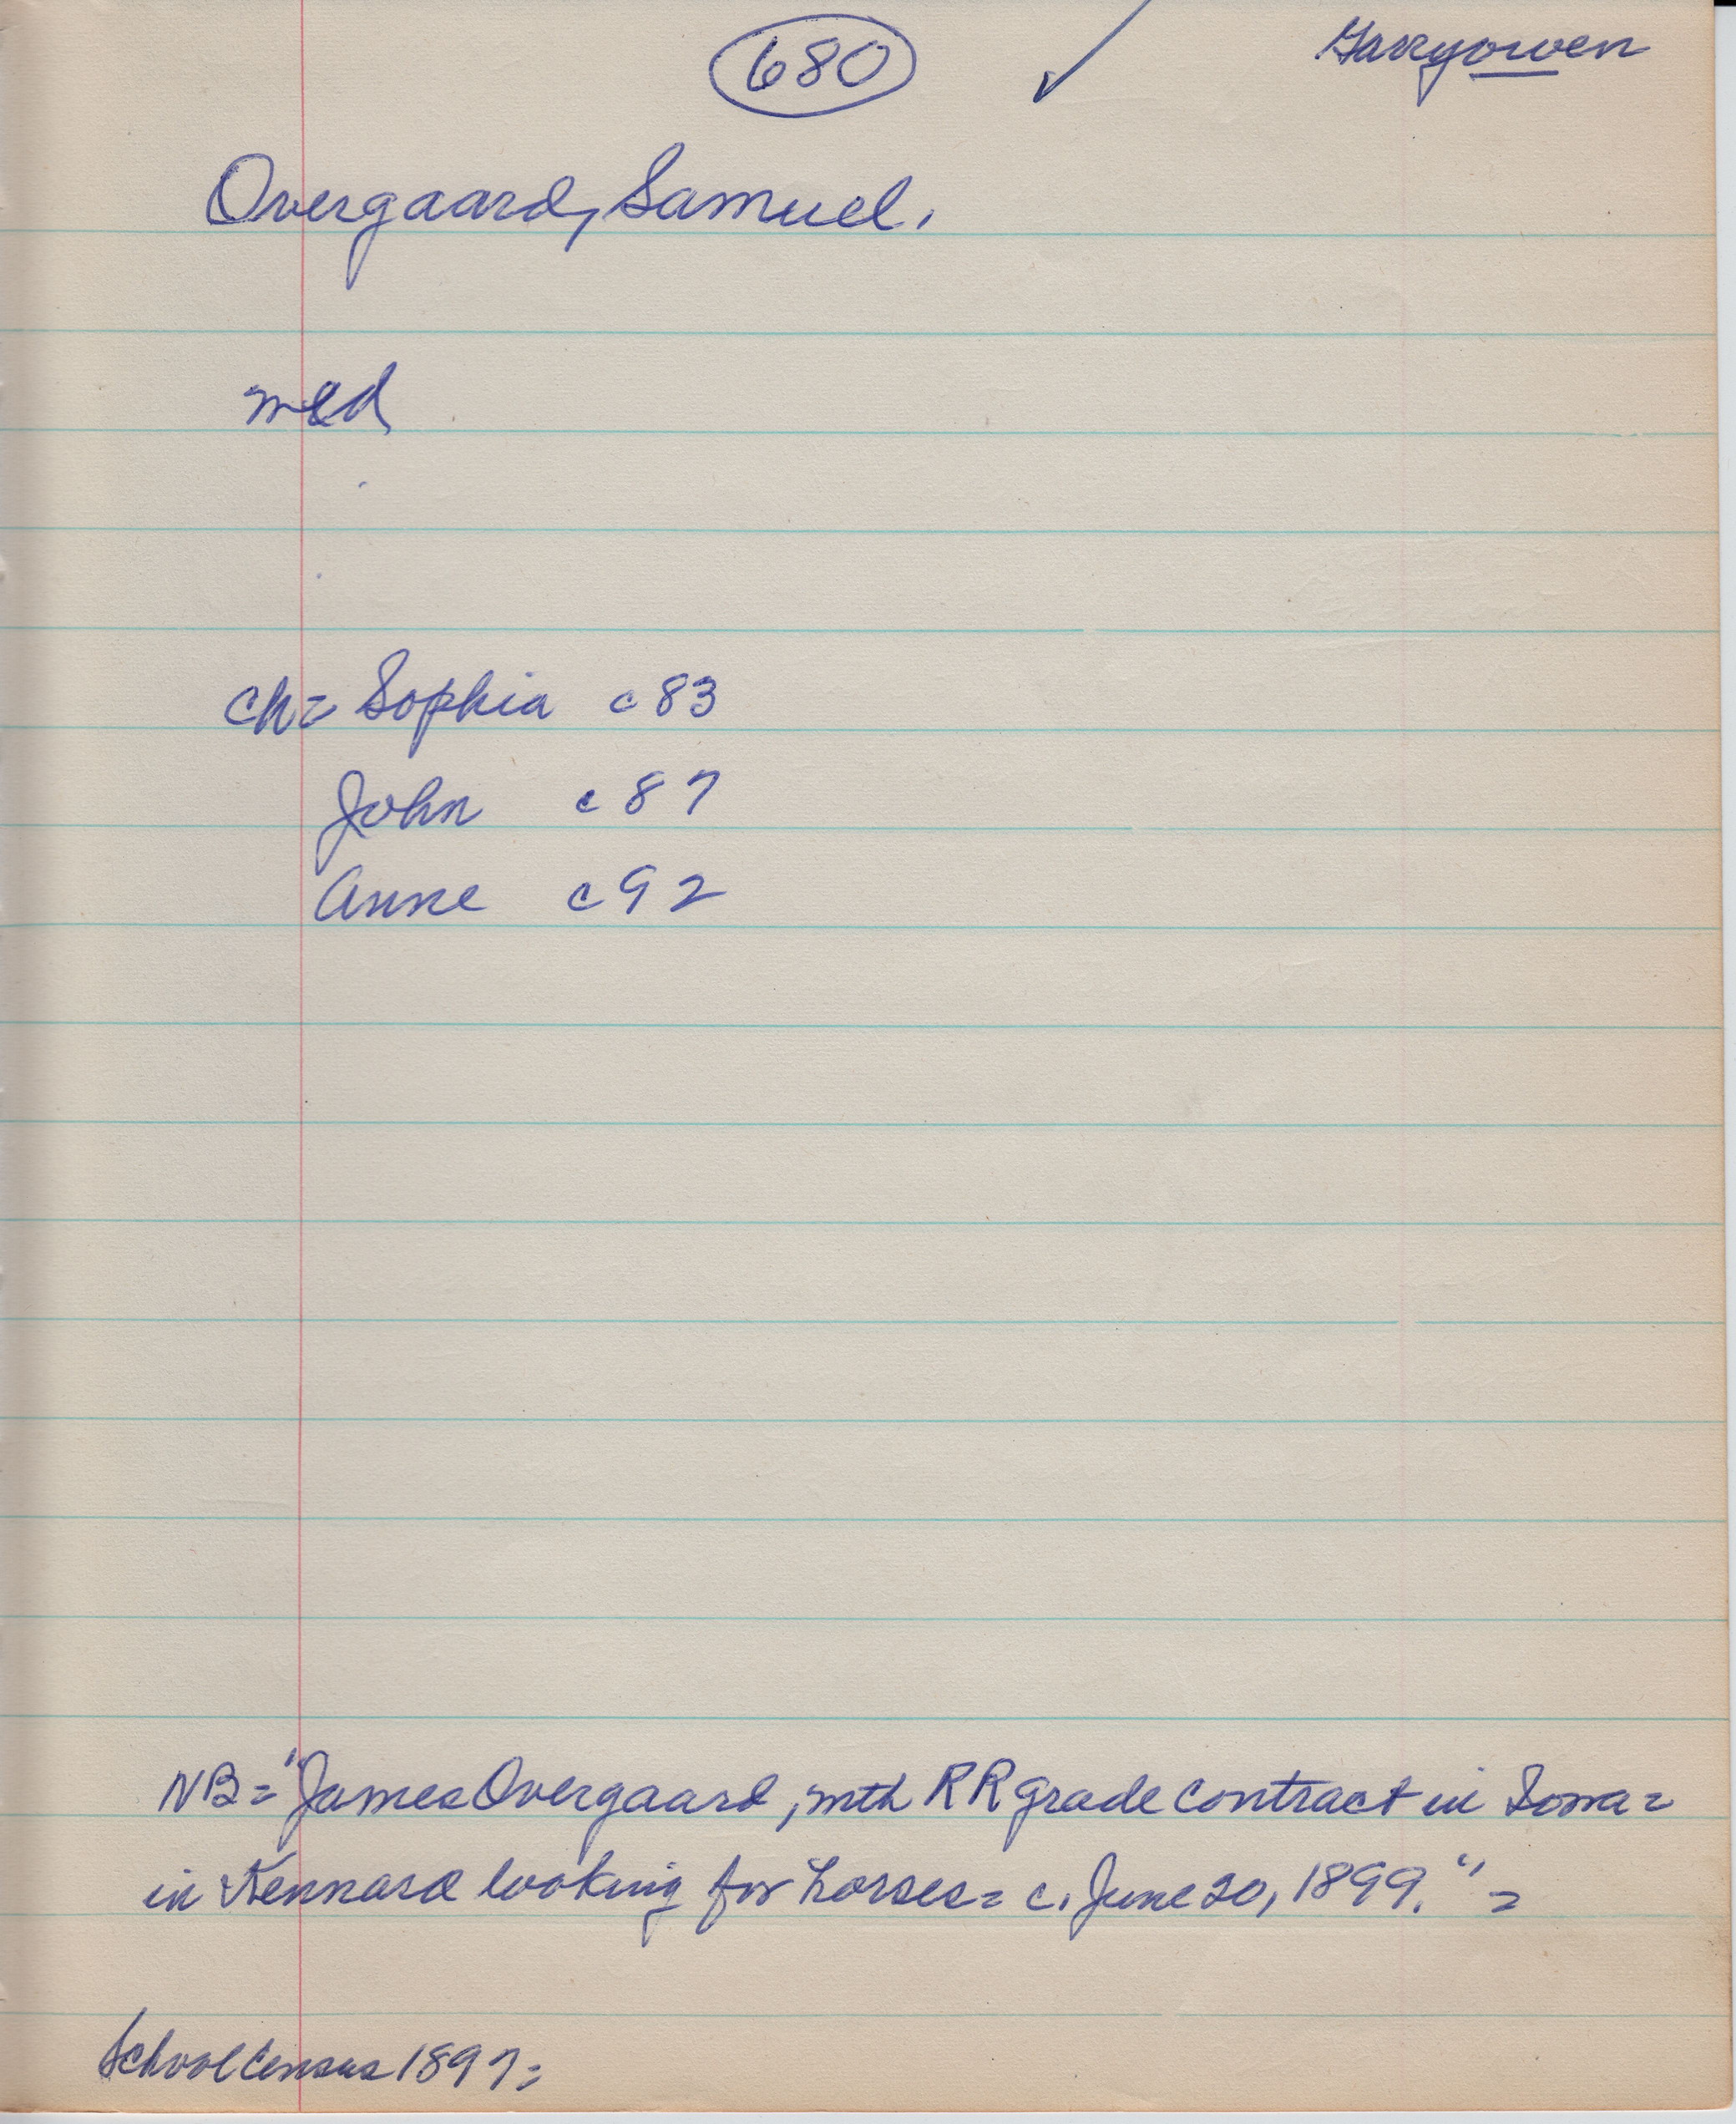 680 ✓ Garryowen
Overgaard, Samuel.
med
ch= Sophia c83
John c87
Anne c92
NB= "James Overgaard, with RR grade contract in Iowa=
in Kennard looking for horses= c. June 20, 1899."=
School Census 1897=